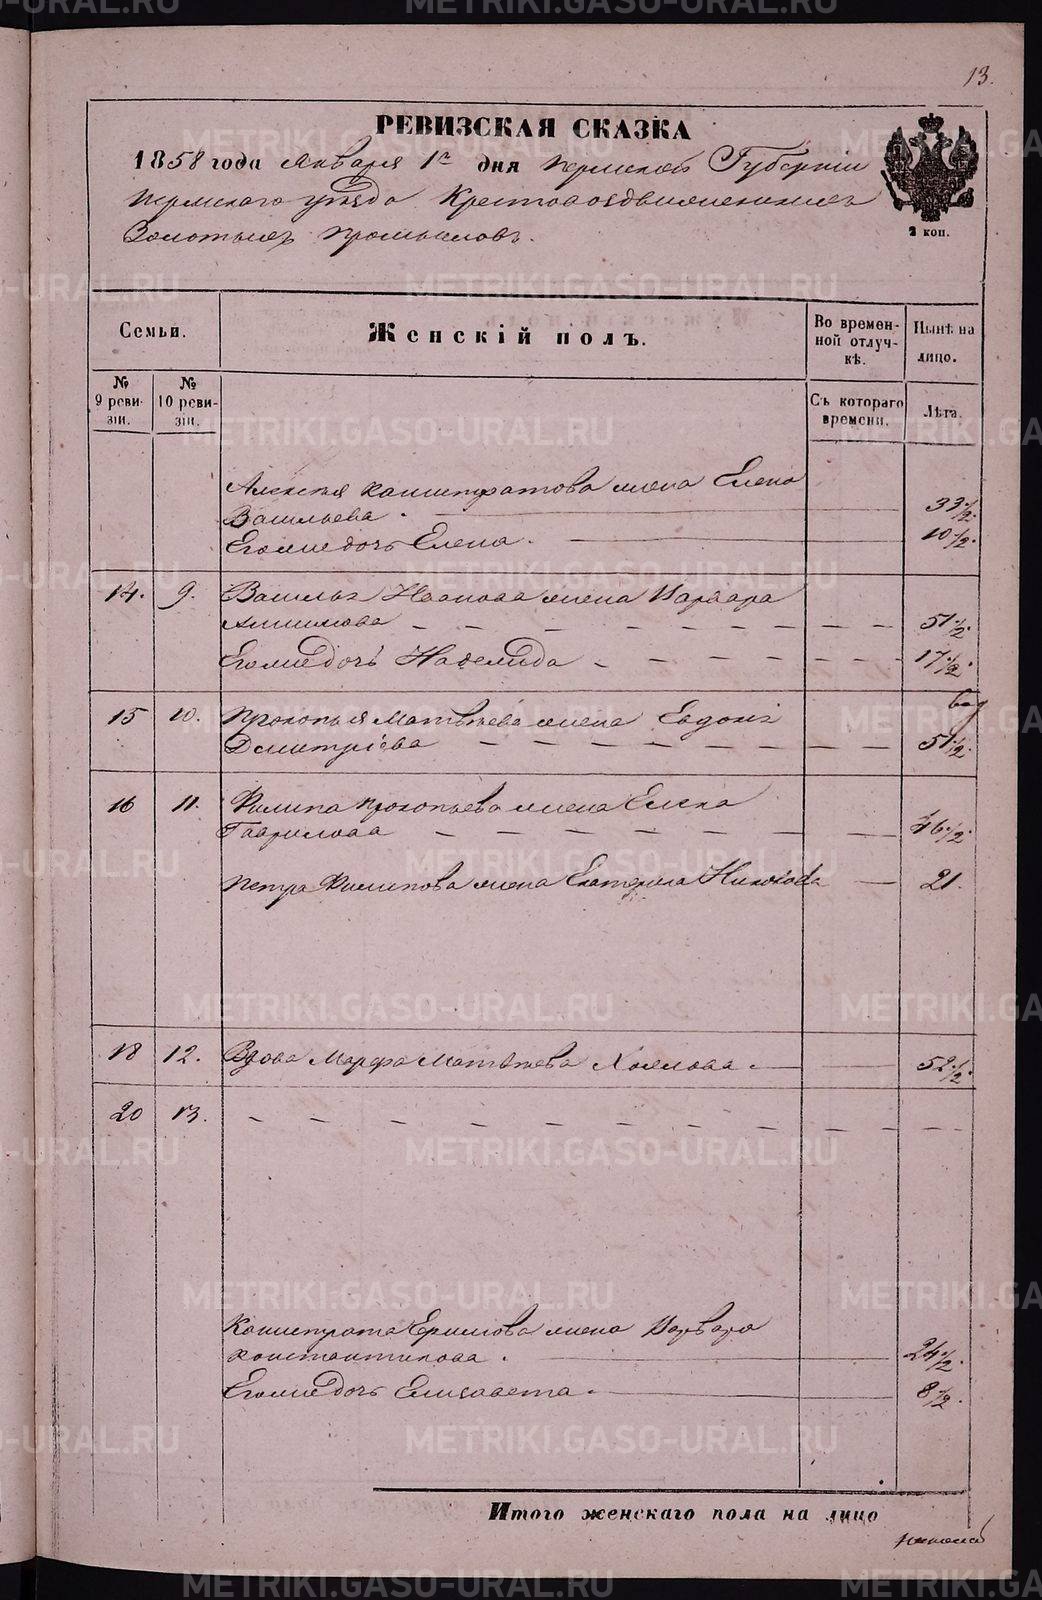 13.
РЕВИЗСКАЯ СКАЗКА
1858 года Января 1го дня Пермской Губерніи
Пермскаго уѣзда Крестовоздвиженскихъ
Золотыхъ промысловъ.
2 коп.
Семьи.
Женскій полъ.
Во времен-
ной отлуч-
кѣ.
Нынѣ на
лицо.
№
9 реви-
зіи.
№
10 реви-
зіи.
Съ котораго
времени.
Лѣта.
Алексѣя Калистратова жена Елена
Васильева. 33 1/2.
Его же дочь Елена. 10 1/2.
14. 9. Василья Иванова жена Варвара
51 1/2.
Его же дочь Надежда 17 1/2.
15 10. Прокопья Матвѣева жена Евдокія
Дмитріева 51 1/2.
16 11. Филипа Прокопьева жена Елена
Гаврилова 46 1/2.
Петра Филипова жена Екатерина 21.
18 12. Вдова Марфа Матвѣева 52 1/2.
20 13.
Калистрата Ермилова жена Варвара
Константинова. 24 1/2.
Его же дочь Елизавета. 8 1/2.
Итого женскаго пола на лицо
METRIKI.GASO-URAL.RU